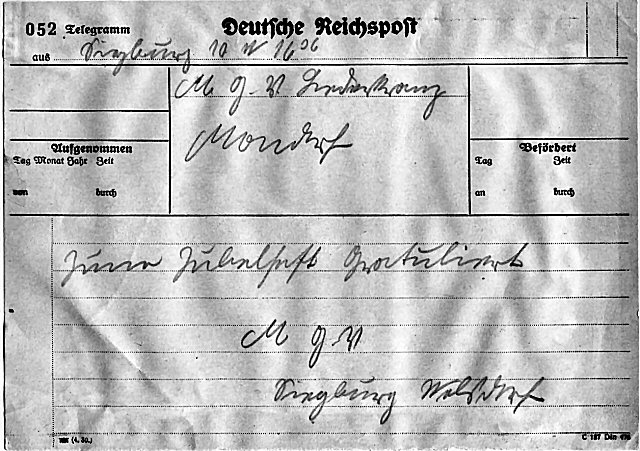 052 Telegramm Deutsche Reichspost
aus Siegburg 10 W 16 36
M G V Liederkranz
Mondorf
Aufgenommen
Tag Monat Jahr Zeit
von durch
Befördert
Tag Zeit
an durch
Zum Jubelfest Gratuliert
M G V
Siegburg Wolsdorf
(4. 30.)
C 187 Din 476